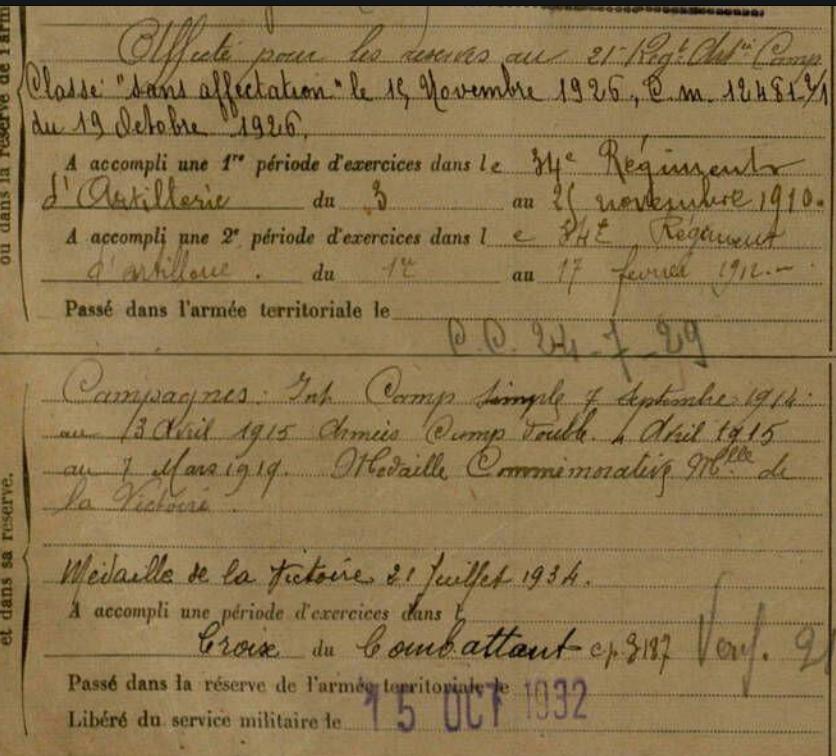 Affecté pour les réserves au 21e Regt Artie Camp
Classé "sans affectation" le 15 Novembre 1926, C.m. 12481 3/1
du 19 Octobre 1926.
A accompli une 1re période d'exercices dans le 34e Régiment
d'Artillerie du 3 au 25 novembre 1910.
A accompli une 2e période d'exercices dans le 34e Régiment
d'artillerie. du 1er au 17 fevrier 1912.-
Passé dans l'armée territoriale le
C.C. 24-7-29
Campagnes: Int Camp simple 7 septembre 1914
au 3 Avril 1915 Armées Camp double. 4 Avril 1915
au 7 Mars 1919. Medaille Commemorative Mlle de
la Victoire.
Médaille de la Victoire 21 Juillet 1934.
A accompli une période d'exercices dans l
Croix du Combattant
du
Passé dans la réserve de l'armée territoriale le
Libéré du service militaire le 15 OCT 1932
ou dans la réserve de l'arm
et dans sa réserve.